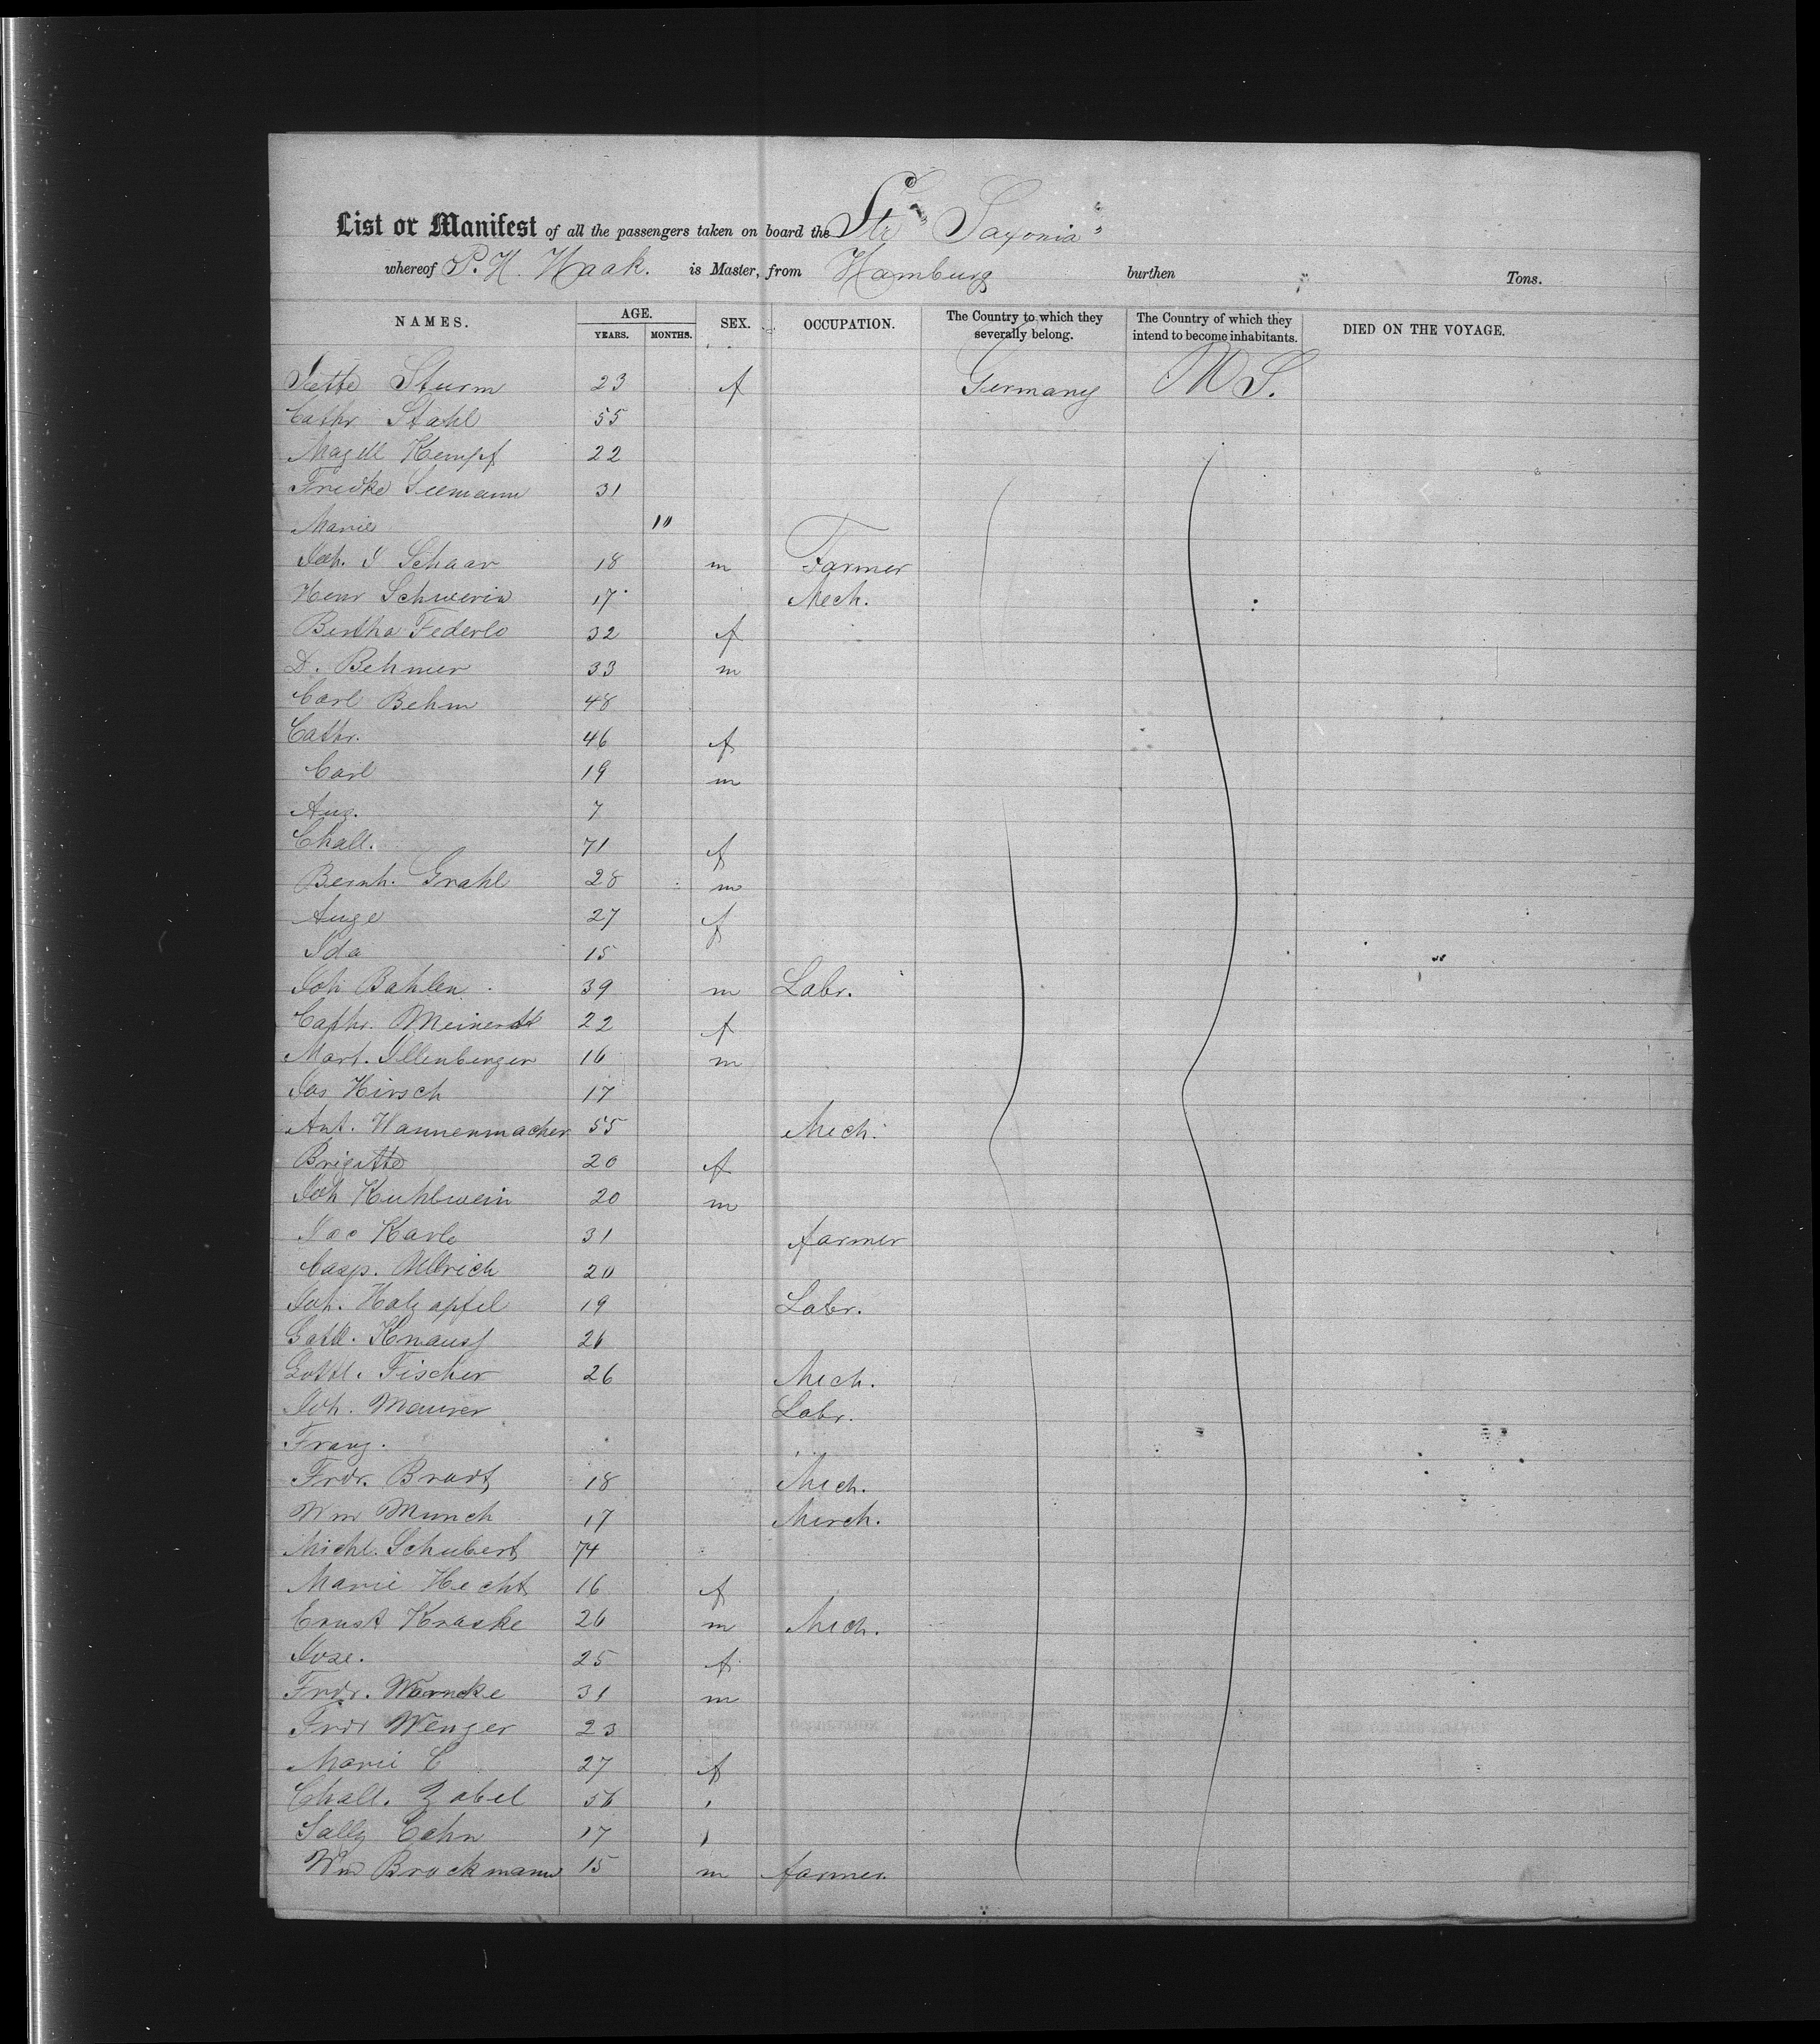 List or Manifest of all the passengers taken on board the Str "Saxonia"
whereof P. H. Haak. is Master, from Hamburg burthen Tons.
NAMES. AGE. YEARS. MONTHS. SEX. OCCUPATION. The Country to which they severally belong. The Country of which they intend to become inhabitants. DIED ON THE VOYAGE.
Jette Sturm 23 f Germany U S.
Cathr Stahl 55
Magdl Kempf 22
Fredke Seemann 31
Marie 10
Joh. J Schaar 18 m Farmer
Henr Schwerin 17 Mech.
Bertha Federlo 32 f
D. Behmer 33 m
Carl Behm 48
Cathr. 46 f
Carl 19 m
Aug. 7
Chall. 71 f
Bernh. Grahl 28 m
Auge 27 f
Ida 15
Joh Bahlen 39 m Labr.
Cathr. Meinerdt 22 f
Mart. Illenberger 16 m
Jos Hirsch 17
Ant. Hannenmacher 55 Mech.
Brigitte 20 f
Joh Kuhlwein 20 m
Jac Karle 31 farmer
Casp. Ullrich 20
Joh. Holzapfel 19 Labr.
Gottl. Knauss 26
Gottl. Fischer 26 Mech.
Joh. Maurer Labr.
Franz. "
Frdr. Bradt 18 Mech.
Wm Munch 17 Merch.
Michl. Schubert 74
Marie Hecht 16 f
Ernst Kraske 26 m Mech.
Jose. 25 f
Frdr. Warncke 31 m
Frdr Wenger 23
Marie C 27 f
Chall. Zabel 56 "
Sally Cahn 17 "
Wm Brockmann 15 m farmer